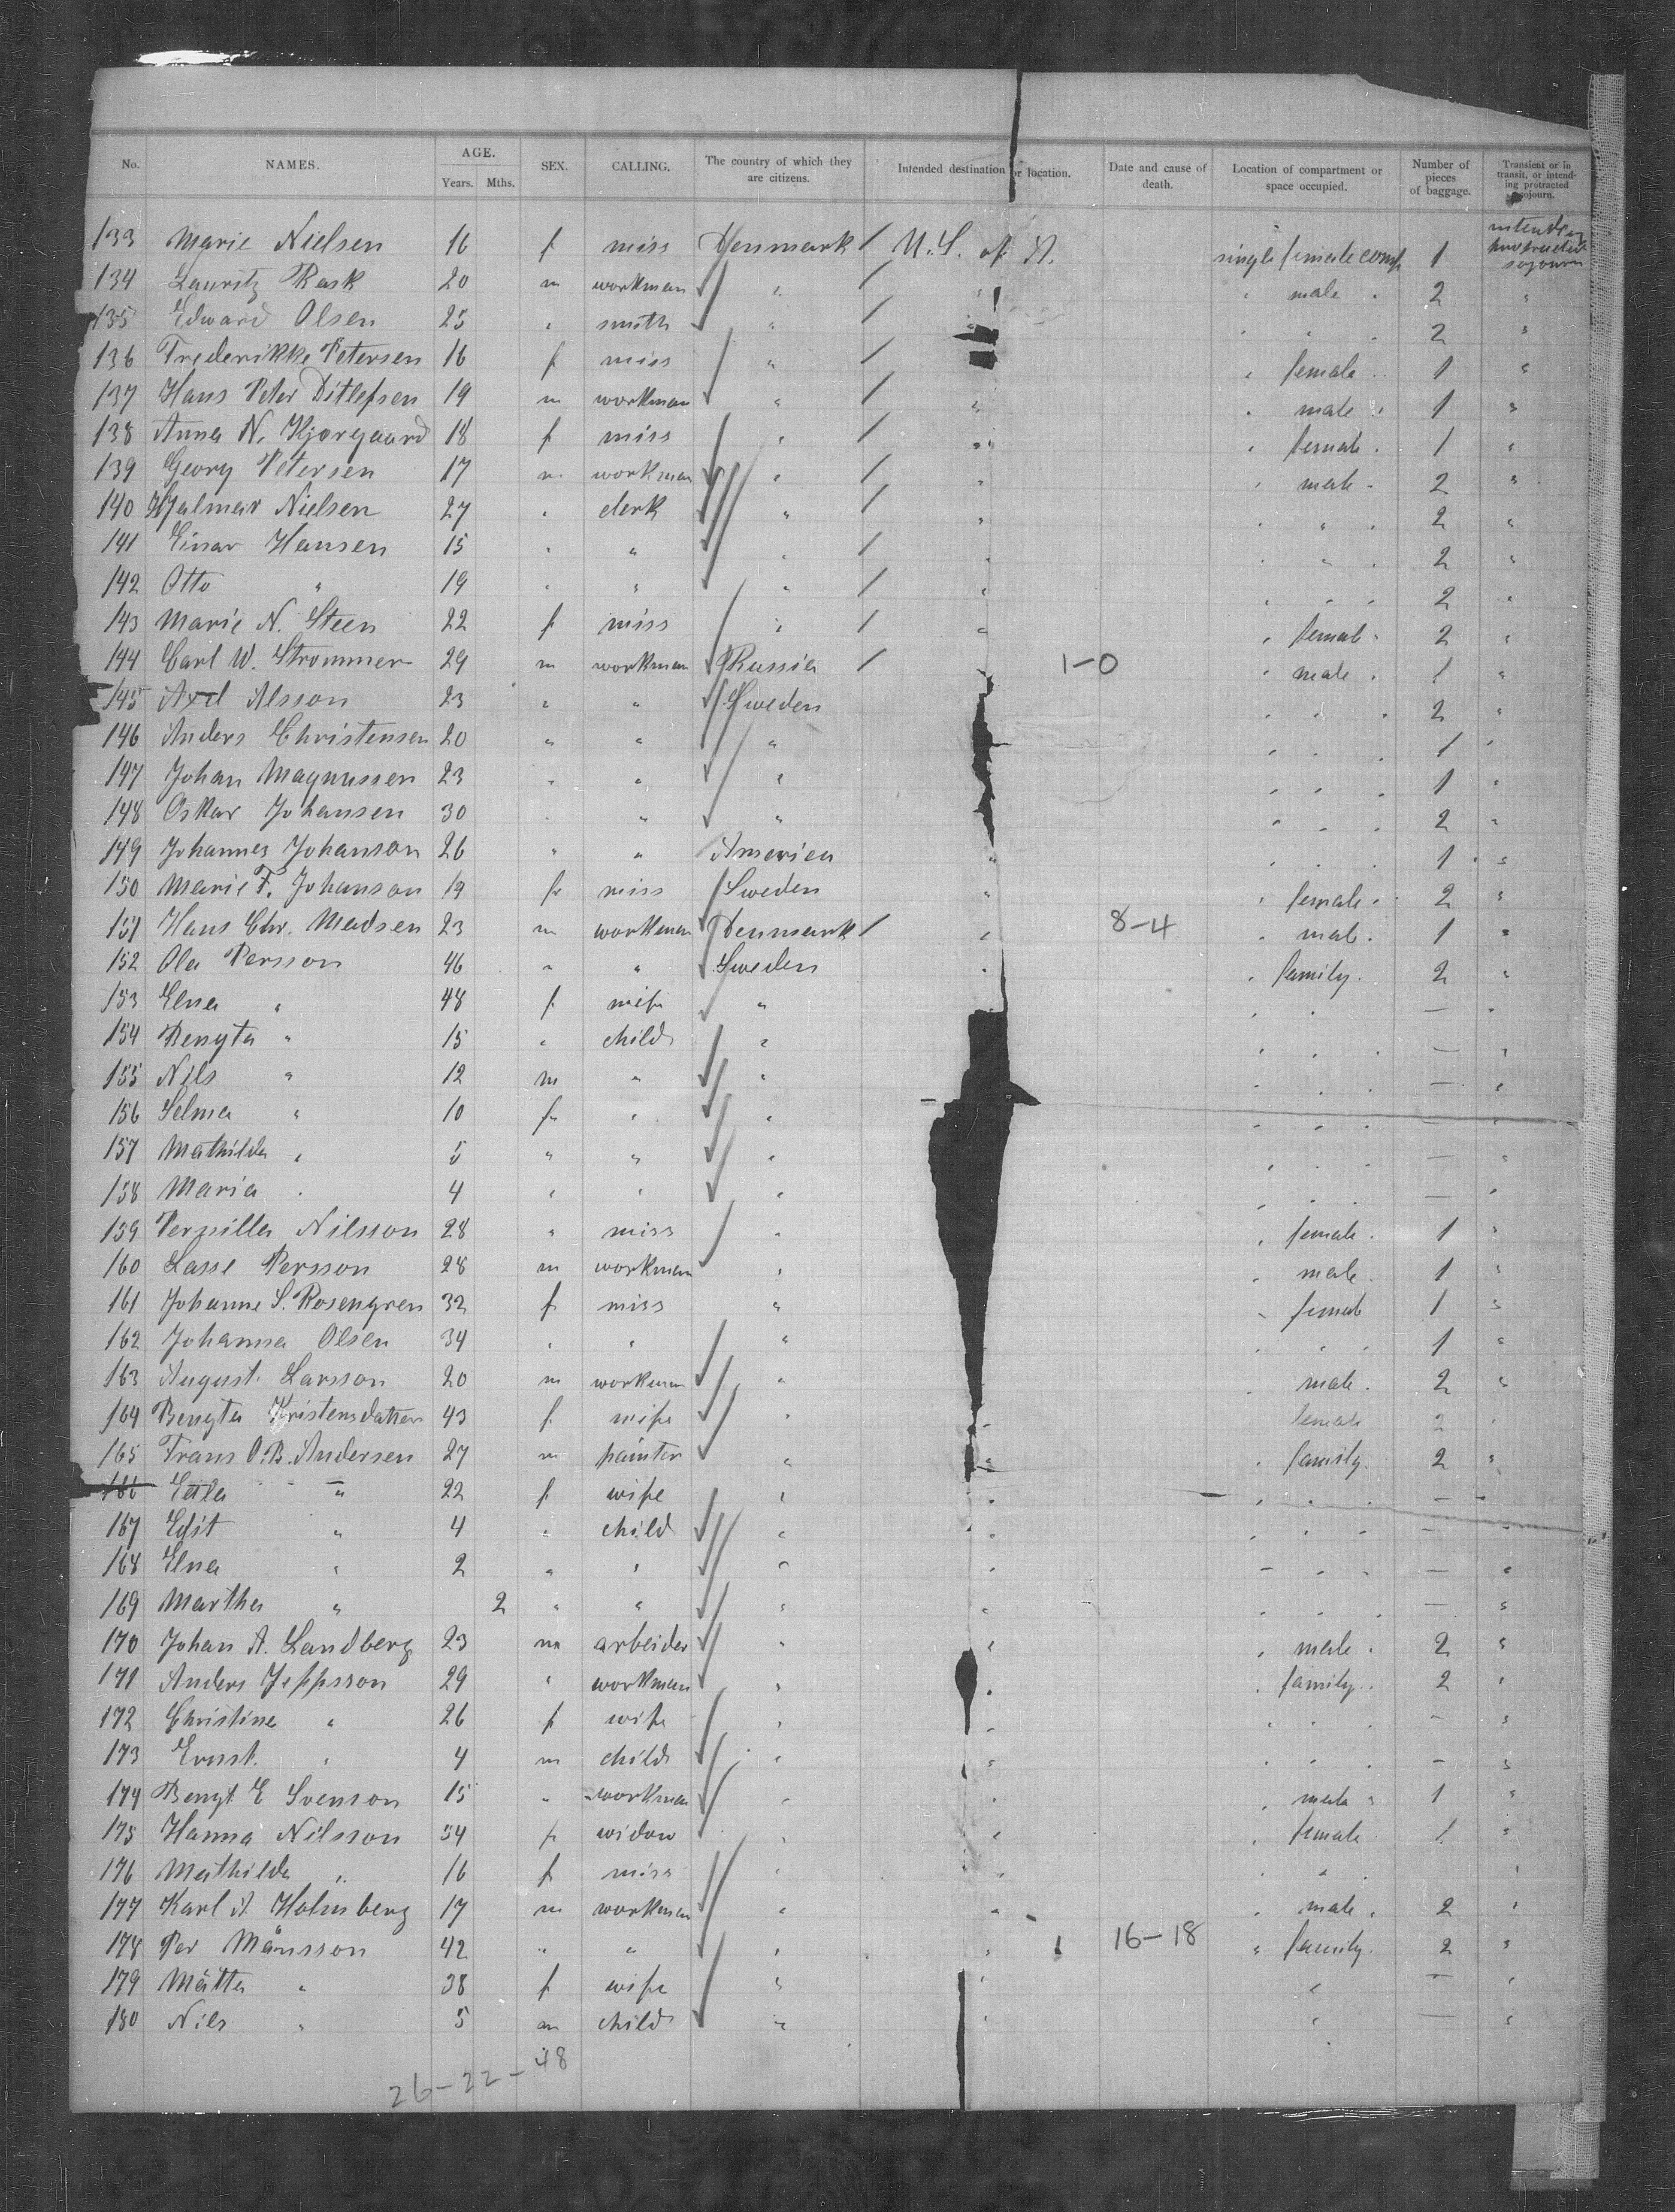 No. NAMES. AGE. Years. Mths. SEX. CALLING. The country of which they are citizens. Intended destination or location. Date and cause of death. Location of compartment or space occupied. Number of pieces of baggage. Transient or in transit, or intending protracted sojourn.
133 Marie Nielsen 16 f miss Denmark / U.S. of A. single female comp 1 intending protracted sojourn
134 Lauritz Rask 20 m workman " / " " male " 2 "
135 Edward Olsen 25 " smith " / " " " " 2 "
136 Frederikke Petersen 16 f miss " / " female " 1 "
137 Hans Peter Ditlefsen 19 m workman " / " " male " 1 "
138 Anna N. Kjærgaard 18 f miss " / " " female " 1 "
139 Georg Petersen 17 m workman " / " " male " 2 "
140 Hjalmar Nielsen 27 " clerk " / " " " " 2 "
141 Einar Hansen 15 " " " / " " " " 2 "
142 Otto " 19 " " " / " " " " 2 "
143 Marie N. Steen 22 f miss " / " " female " 2 "
144 Carl W. Strommer 29 m workman Russia / " 1-0 " male " 1 "
145 Axel Alsson 23 " " Sweden " " " 2 "
146 Anders Christensen 20 " " " " " " 1 "
147 Johan Magnussen 23 " " " " " " 1 "
148 Oskar Johansen 30 " " " " " " 2 "
149 Johannes Johanson 26 " " America " " " " 1 "
150 Marie F. Johanson 19 f miss Sweden " " female " 2 "
151 Hans Chr. Madsen 23 m workman Denmark / " 8-4 " male " 1 "
152 Ola Persson 46 " " Sweden " " family " 2 "
153 Elna " 48 f wife " " " — "
154 Bengta " 15 " child " " " " — "
155 Nils " 12 m " " " " " — "
156 Selma " 10 f " " " " " — "
157 Mathilda " 5 " " " " " " — "
158 Maria " 4 " " " " " " — "
159 Pernilla Nilsson 28 " miss " " female " 1 "
160 Lasse Persson 28 m workman " " male " 1 "
161 Johanne S. Rosengren 32 f miss " " female 1 "
162 Johanna Olsen 34 " " " " " " 1 "
163 August Larsson 20 m workman " " male " 2 "
164 Bengta Kristensdatter 43 f wife " " female 2 "
165 Frans O.B. Andersen 27 m painter " " " family " 2 "
166 " 22 f wife " " " " — "
167 Edit " 4 " child " " " " " — "
168 Elna " 2 " " " " " " " — "
169 Martha " 2 " " " " " " " — "
170 Johan A. Landberg 23 m arbeider " " " male " 2 "
171 Anders Jeppsson 29 " workman " " " family " 2 "
172 Christine " 26 f wife " " " " " — "
173 Ernst " 4 m child " " " " — "
174 Bengt E Svenson 15 " workman " " " male " 1 "
175 Hanna Nilsson 54 f widow " " " female 1 "
176 Mathilda " 16 f miss " " " " "
177 Karl A Holmberg 17 m workman " " " male " 2 "
178 Per Månsson 42 " " " " 16-18 " family " 2 "
179 Mätta " 38 f wife " " " — "
180 Nils " 5 m child " " " — "
26-22-48